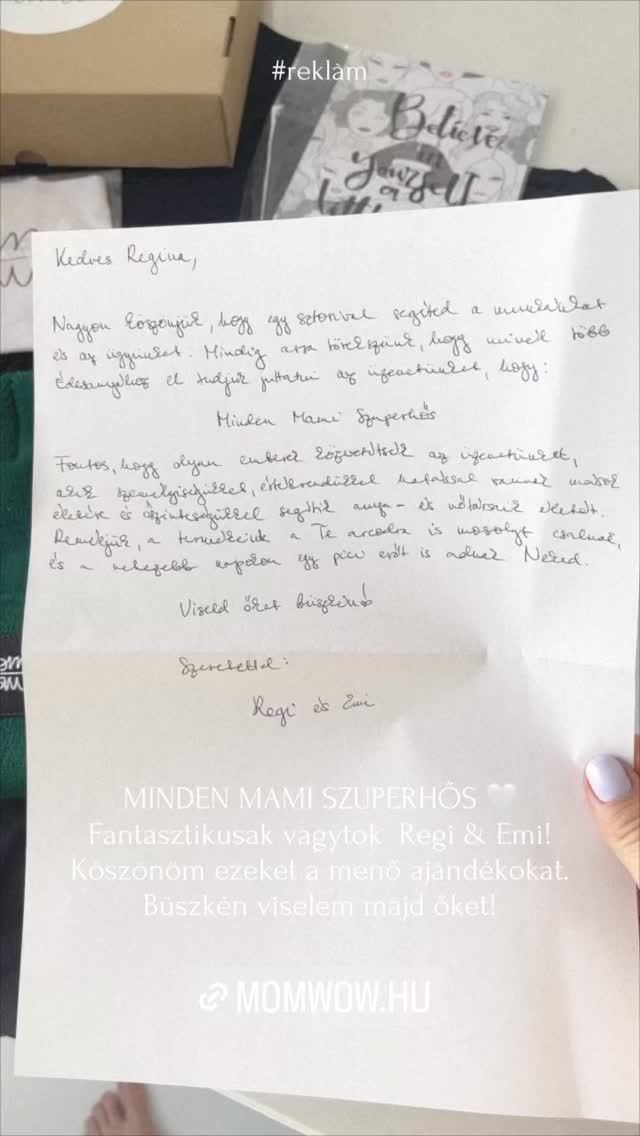 #reklàm
Believe
in
yourself
a
little
Kedves Regina,
Nagyon köszönjük, hogy egy sztorival segíted a munkánkat
és az ügyünket. Mindig arra törekszünk, hogy minél több
Édesanyához el tudjuk juttatni az üzenetünket, hogy:
Minden Mami Szuperhős
Fontos, hogy olyan emberek közvetítsék az üzenetünket,
akik személyiségükkel, értékrendükkel hatással vannak mások
életére és őszinteségükkel segítik anya- és nőtársaik életét.
Reméljük, a termékeink a Te arcodra is mosolyt csalnak,
és a nehezebb napokon egy pici erőt is adnak Neked.
Viseld őket büszkén!
Szeretettel:
Regi és Emi
MINDEN MAMI SZUPERHŐS 🤍
Fantasztikusak vagytok Regi & Emi!
Köszönöm ezeket a menő ajándékokat.
Büszkén viselem majd őket!
MOMWOW.HU